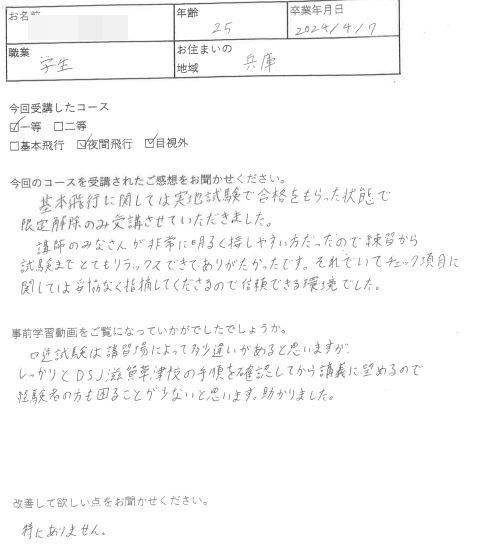 お名前
年齢
25
卒業年月日
2024/4/7
職業
学生
お住まいの
地域
兵庫
今回受講したコース
☑一等 ☐二等
☐基本飛行 ☑夜間飛行 ☑目視外
今回のコースを受講されたご感想をお聞かせください。
基本飛行に関しては実地試験で合格をもらった状態で
限定解除のみ受講させていただきました。
講師のみなさんが非常に明るく接しやすい方だったので練習から
試験までとてもリラックスできてありがたかったです。それでいてチェック項目に
関しては妥協なく指摘してくださるので信頼できる環境でした。
事前学習動画をご覧になっていかがでしたでしょうか。
口述試験は講習場によって多少違いがあると思いますが、
しっかりとDSJ滋賀草津校の手順を確認してから講義に望めるので
経験者の方も困ることが少ないと思います。助かりました。
改善して欲しい点をお聞かせください。
特にありません。